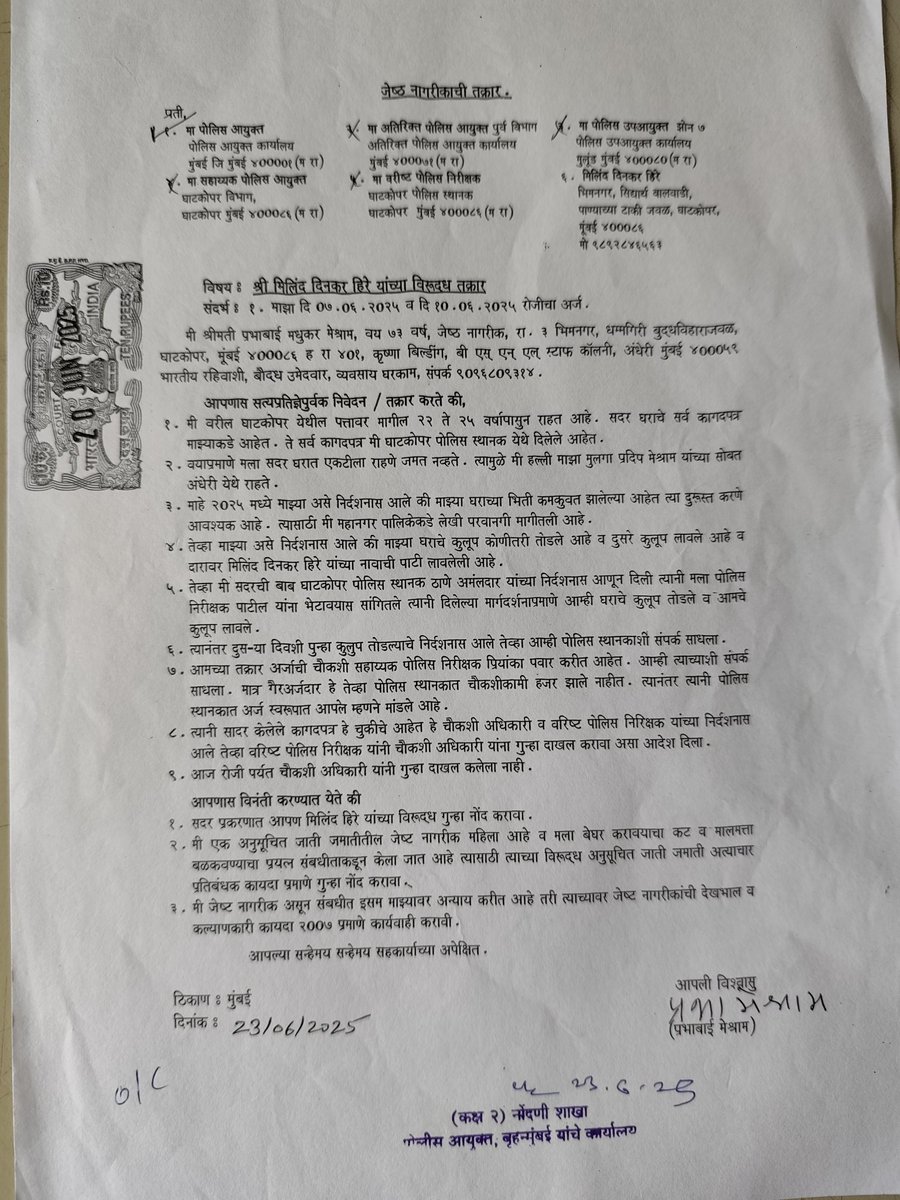 जेष्ठ नागरीकाची तक्रार.
प्रती,
१. मा पोलिस आयुक्त
पोलिस आयुक्त कार्यालय
मुंबई जि मुंबई ४००००१ (म रा)
२. मा अतिरिक्त पोलिस आयुक्त पुर्व विभाग
अतिरिक्त पोलिस आयुक्त कार्यालय
मुंबई ४०००७१ (म रा)
मा पोलिस उपआयुक्त झोन ७
पोलिस उपआयुक्त कार्यालय
मुलूंड मुंबई ४०००८० (म रा)
मा सहाय्यक पोलिस आयुक्त
घाटकोपर विभाग,
घाटकोपर मुंबई ४०००८६ (म रा)
मा वरीष्ट पोलिस निरीक्षक
घाटकोपर पोलिस स्थानक
घाटकोपर मुंबई ४०००८६ (म रा)
६. मिलिंद दिनकर हिरे
भिमनगर, सिध्दार्थ बालवाडी,
पाण्याच्या टाकी जवळ, घाटकोपर,
मूंबई ४०००८६
मो ९८९२८४६५६३
विषय : श्री मिलिंद दिनकर हिरे यांच्या विरूदध तक्रार
संदर्भ : १. माझा दि ०७.०६.२०२५ व दि १०.०६.२०२५ रोजीचा अर्ज.
मी श्रीमती प्रभाबाई मधुकर मेश्राम, वय ७३ वर्ष, जेष्ठ नागरीक, रा. ३ भिमनगर, धम्मगिरी बुदधविहाराजवळ,
घाटकोपर, मूंबई ४०००८६ ह रा ४०१, कृष्णा बिल्डींग, बी एस् एन् एल् स्टाफ कॉलनी, अंधेरी मुंबई ४०००५९
भारतीय रहिवाशी, बौदध उमेदवार, व्यवसाय घरकाम, संपर्क ९०९६८०९३१४.
आपणास सत्यप्रतिज्ञेपुर्वक निवेदन / तक्रार करते की,
१. मी वरील घाटकोपर येथील पत्तावर मागील २२ ते २५ वर्षापासुन राहत आहे. सदर घराचे सर्व कागदपत्र
माझ्याकडे आहेत. ते सर्व कागदपत्र मी घाटकोपर पोलिस स्थानक येथे दिलेले आहेत.
२. वयाप्रमाणे मला सदर घरात एकटीला राहणे जमत नव्हते. त्यामुळे मी हल्ली माझा मुलगा प्रदिप मेश्राम यांच्या सोबत
अंधेरी येथे राहते.
३. माहे २०२५ मध्ये माझ्या असे निर्दशनास आले की माझ्या घराच्या भिती कमकुवत झालेल्या आहेत त्या दुरूस्त करणे
आवश्यक आहे. त्यासाठी मी महानगर पालिकेकडे लेखी परवानगी मागीतली आहे.
४. तेव्हा माझ्या असे निर्दशनास आले की माझ्या घराचे कुलूप कोणीतरी तोडले आहे व दुसरे कुलूप लावले आहे व
दारावर मिलिंद दिनकर हिरे यांच्या नावाची पाटी लावलेली आहे.
५. तेव्हा मी सदरची बाब घाटकोपर पोलिस स्थानक ठाणे अमंलदार यांच्या निर्दशनास आणून दिली त्यानी मला पोलिस
निरीक्षक पाटील यांना भेटावयास सांगितले त्यानी दिलेल्या मार्गदर्शनाप्रमाणे आम्ही घराचे कुलूप तोडले व आमचे
कुलूप लावले.
६. त्यानंतर दुस-या दिवशी पुन्हा कुलुप तोडल्याचे निर्दशनास आले तेव्हा आम्ही पोलिस स्थानकाशी संपर्क साधला.
७. आमच्या तक्रार अर्जाची चौकशी सहाय्यक पोलिस निरीक्षक प्रियांका पवार करीत आहेत. आम्ही त्याच्याशी संपर्क
साधला. मात्र गैरअर्जदार हे तेव्हा पोलिस स्थानकात चौकशीकामी हजर झाले नाहीत. त्यानंतर त्यानी पोलिस
स्थानकात अर्ज स्वरूपात आपले म्हणने मांडले आहे.
८. त्यानी सादर केलेले कागदपत्र हे चुकीचे आहेत हे चौकशी अधिकारी व वरिष्ट पोलिस निरिक्षक यांच्या निर्दशनास
आले तेव्हा वरिष्ट पोलिस निरीक्षक यांनी चौकशी अधिकारी यांना गुन्हा दाखल करावा असा आदेश दिला.
९. आज रोजी पर्यत चौकशी अधिकारी यांनी गुन्हा दाखल कलेला नाही.
आपणास विनंती करण्यात येते की
१. सदर प्रकरणात आपण मिलिंद हिरे यांच्या विरूदध गुन्हा नोंद करावा.
२. मी एक अनुसूचित जाती जमातीतील जेष्ट नागरीक महिला आहे व मला बेघर करावयाचा कट व मालमत्ता
बळकवण्याचा प्रयत्न संबधीताकडून केला जात आहे त्यासाठी त्याच्या विरूदध अनुसूचित जाती जमाती अत्याचार
प्रतिबंधक कायदा प्रमाणे गुन्हा नोंद करावा.
३. मी जेष्ट नागरीक असून संबधीत इसम माझ्यावर अन्याय करीत आहे तरी त्याच्यावर जेष्ट नागरीकांची देखभाल व
कल्याणकारी कायदा २००७ प्रमाणे कार्यवाही करावी.
आपल्या सन्हेमय सन्हेमय सहकार्याच्या अपेक्षित.
ठिकाण : मुंबई
दिनांक : 23/06/2025
आपली विश्वासु
प्रभा मेश्राम
(प्रभाबाई मेश्राम)
O/C
23.6.25
(कक्ष २) नोंदणी शाखा
पोलीस आयुक्त, बृहन्मुंबई यांचे कार्यालय
Rs.10
INDIA
TEN RUPEES
20 JUN 2025
COURT
भारत
दस रुपये